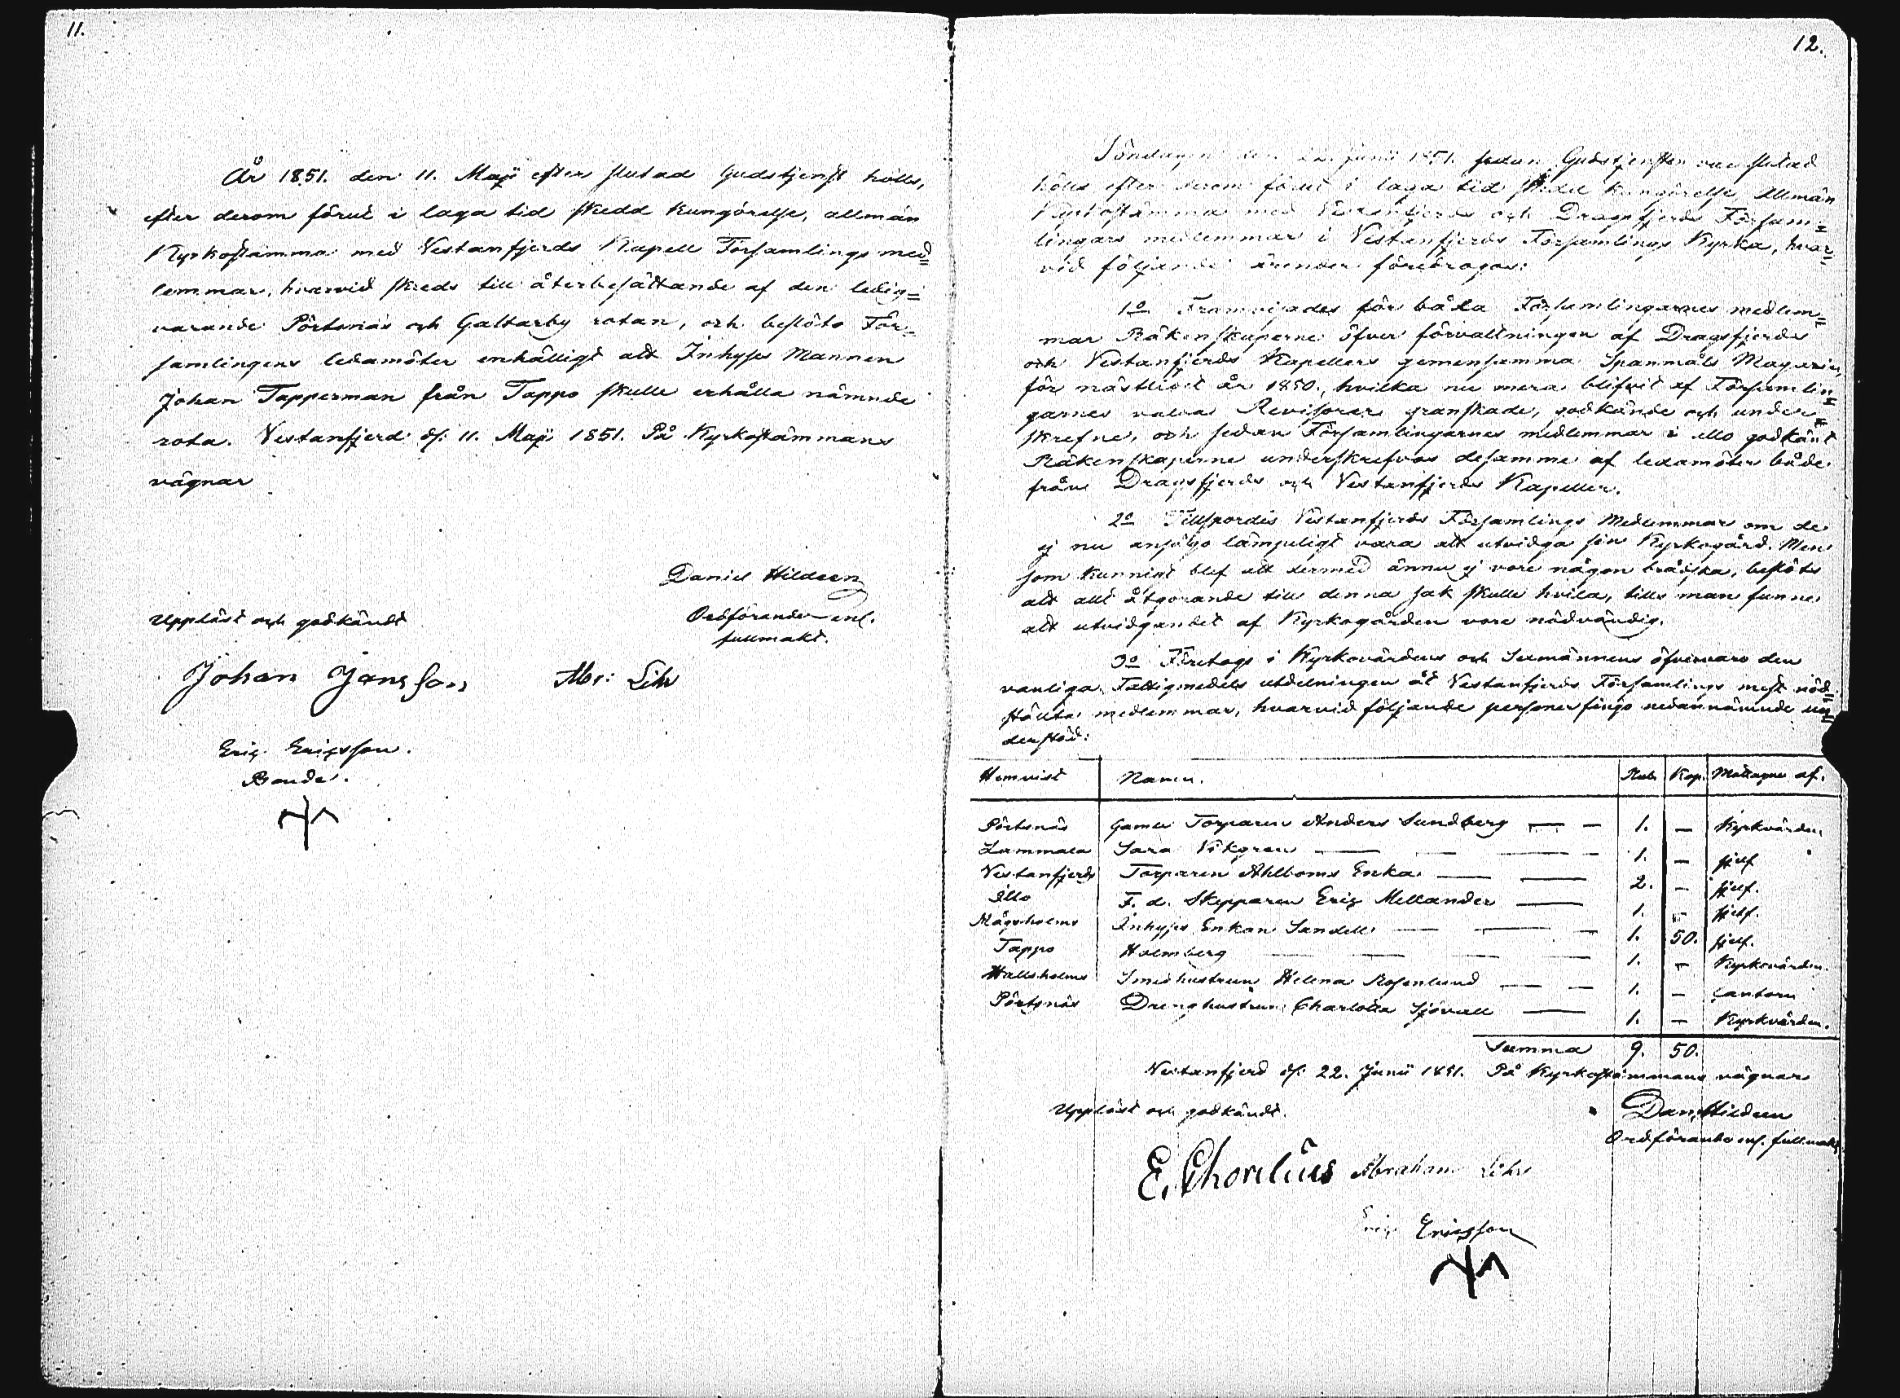 11.
År 1851. den 11. Maji efter slutad Gudstjenst hölls,
efter derom förut i laga tid skedd kungörelse, allmän
Kyrkostämma med Vestanfjerds Kapell Församlings med=
lemmar, hvarvid skreds till återbesättande af den ledig=
varande Pörtsnäs och Galtarby rotan, och beslöto För=
samlingens ledamöter enhälligt att Inhyses Mannen
Johan Tapperman från Tappo skulle erhålla nämnde
rota. Vestanfjerd d. 11. Maji 1851. På Kyrkostämmans
vägnar
Daniel Hildeen
Ordförande enl.
fullmakt.
Uppläst och godkändt
Johan Jansson Abr: Lihr
Eric Ericsson.
Bonde.
12.
Söndagen den 22. Junii 1851. sedan Gudstjensten var slutad
hölls efter derom förut i laga tid skedd kungörelse allmän
Kyrkostämma med Vestanfjerds och Dragsfjerds Försam=
lingars medlemmar i Vestanfjerds Församlings Kyrka, hvar=
vid följande ärender föredrogos:
1o Framvisades för båda Församlingarnes medlem=
mar Räkenskaperne öfver förvaltningen af Dragsfjerds
och Vestanfjerds Kapellers gemensamma Spannmåls Magasin,
för nästlidit år 1850, hvilka nu mera blifvit af Församlin=
garnes valda Revisorer granskade, godkände och under=
skrefne, och sedan Församlingarnes medlemmar i allo godkänt
Räkenskaperne underskrefvos desamme af ledamöter både
från Dragsfjerds och Vestanfjerds Kapeller.
2o Tillspordes Vestanfjerds Församlings Medlemmar om de
ej nu ansågo lämpligt vara att utvidga sin Kyrkogård. Men
som kunnigt blef att dermed ännu ej vore någon brådska, beslöts
att allt åtgörande till denna sak skulle hvila, tills man funne
att utvidgandet af Kyrkogården vore nödvändig.
3o Företogs i Kyrkovärdens och Sexmännens öfvervaro den
vanliga Fattigmedels utdelningen åt Vestanfjerds Församlings mest nöd=
stälta medlemmar, hvarvid följande personer fingo nedannämnde un=
derstöd:
Hemvist Namn. Rub. Kop. Mottagne af.
Pörtsnäs Gamla Torparen Anders Sundberg 1. — Kyrkvärden
Lammala Sara Vikgren 1. — sjelf
Vestanfjerds Torparen Ahlboms Enka 2. — sjelf.
Illo F. d. Skepparen Eric Mellander 1. — sjelf.
Mågsholms Inhyses Enkan Sandell 1. 50. sjelf.
Tappo Holmberg 1. — Kyrkovärden.
Hallsholms Smedhustrun Helena Rosenlund 1. — Cantorn
Pörtsnäs Drenghustrun Charlotta Sjövall 1. — Kyrkvärden.
Summa 9. 50.
Vestanfjerd d. 22. Junii 1851. På Kyrkostämmans vägnar
Uppläst och godkändt. Dan. Hildeen
Ordförande enl. fullmakt.
E. Chorelius Abraham Lihr
Eric Ericsson